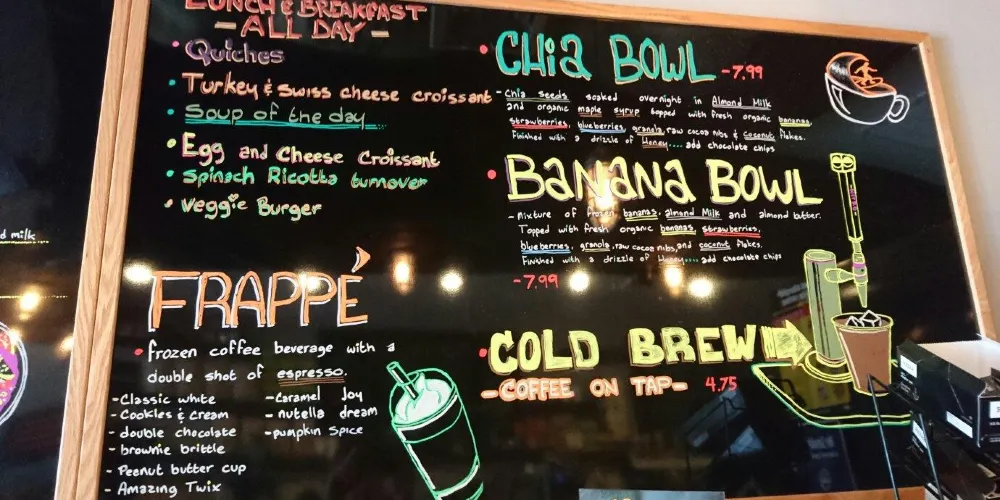 LUNCH & BREAKFAST
- ALL DAY -
• Quiches
• Turkey & Swiss cheese croissant
• Soup of the day
• Egg and Cheese Croissant
• Spinach Ricotta turnover
• Veggie Burger
FRAPPÉ
• frozen coffee beverage with a
double shot of espresso.
- Classic white
- Cookies & Cream
- double chocolate
- brownie brittle
- Peanut butter cup
- Amazing Twix
- Caramel Joy
- nutella dream
- pumpkin Spice
• CHia BOWL - 7.99
- Chia seeds soaked overnight in Almond Milk
and organic maple syrup topped with fresh organic bananas,
strawberries, blueberries, granola, raw cocoa nibs & coconut flakes.
Finished with a drizzle of Honey.... add chocolate chips
• BaNaNa BOWL
- Mixture of frozen bananas, almond Milk and almond butter.
Topped with fresh organic bananas, strawberries,
blueberries, granola, raw cocoa nibs, and coconut flakes.
Finished with a drizzle of Honey.... add chocolate chips
- 7.99
• COLD BREW
- COFFEE ON TAP - 4.75
d milk